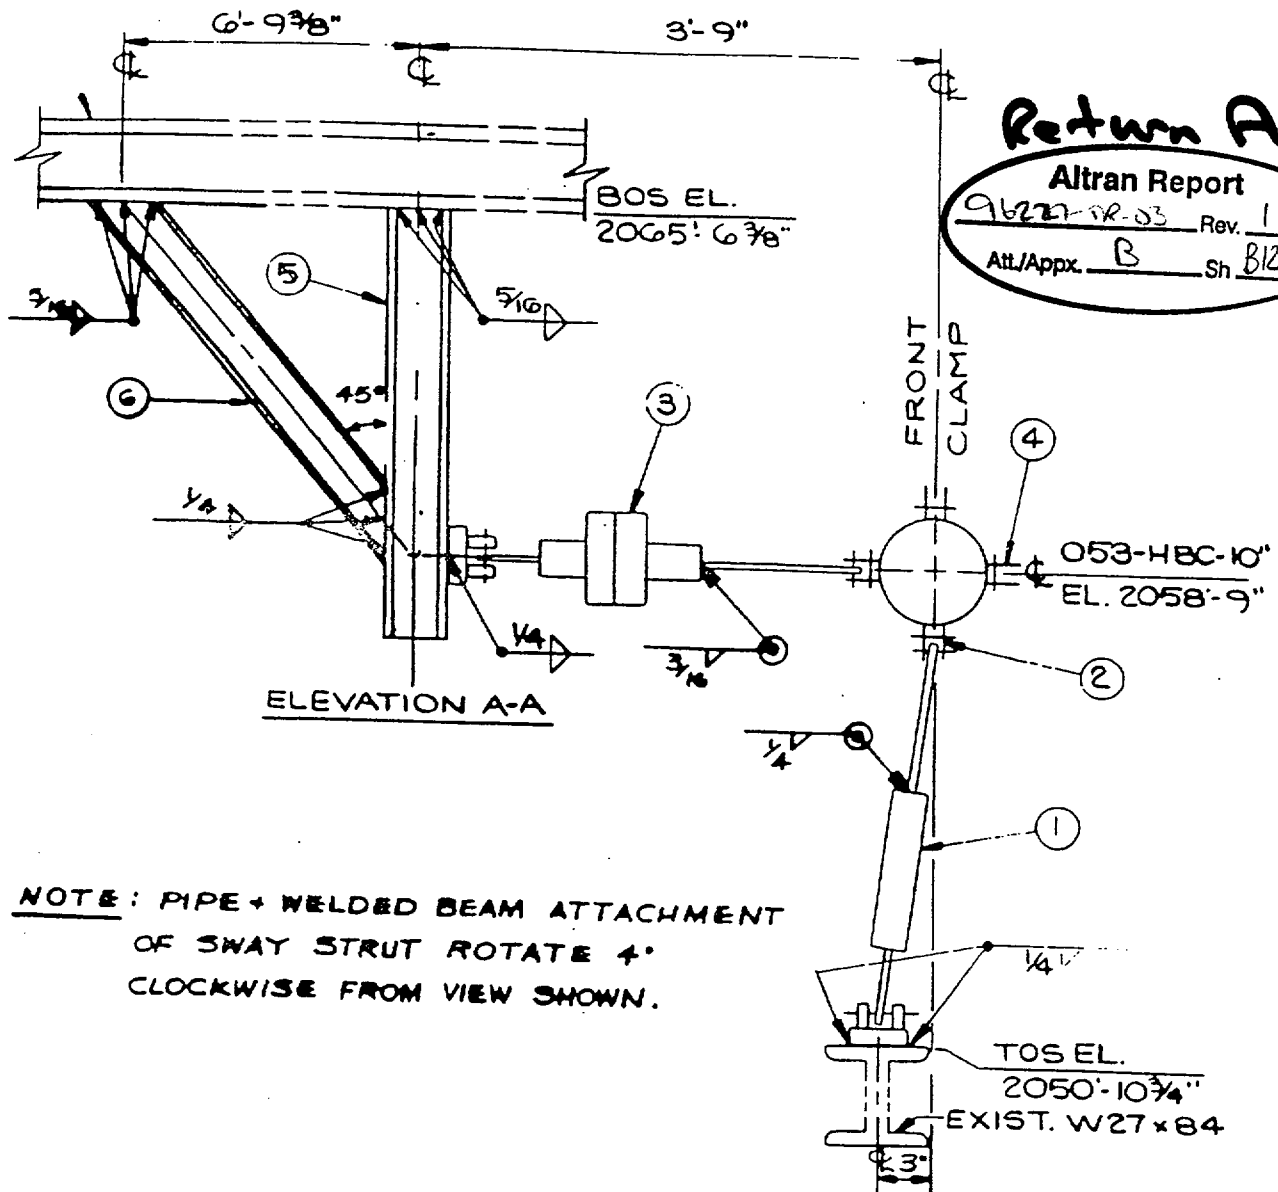 6'-9 3/8"
3'-9"
Return A
Altran Report
Rev. 1
Att./Appx. B Sh B12
BOS EL.
2065'-6 3/8"
5
5/16
5/16
FRONT
CLAMP
6
45°
3
4
1/4
053-HBC-10"
EL. 2058'-9"
1/4
3/16
2
ELEVATION A-A
1/4
1
NOTE: PIPE + WELDED BEAM ATTACHMENT
OF SWAY STRUT ROTATE 4°
CLOCKWISE FROM VIEW SHOWN.
1/4
TOS EL.
2050'-10 3/4"
EXIST. W27x84
3"